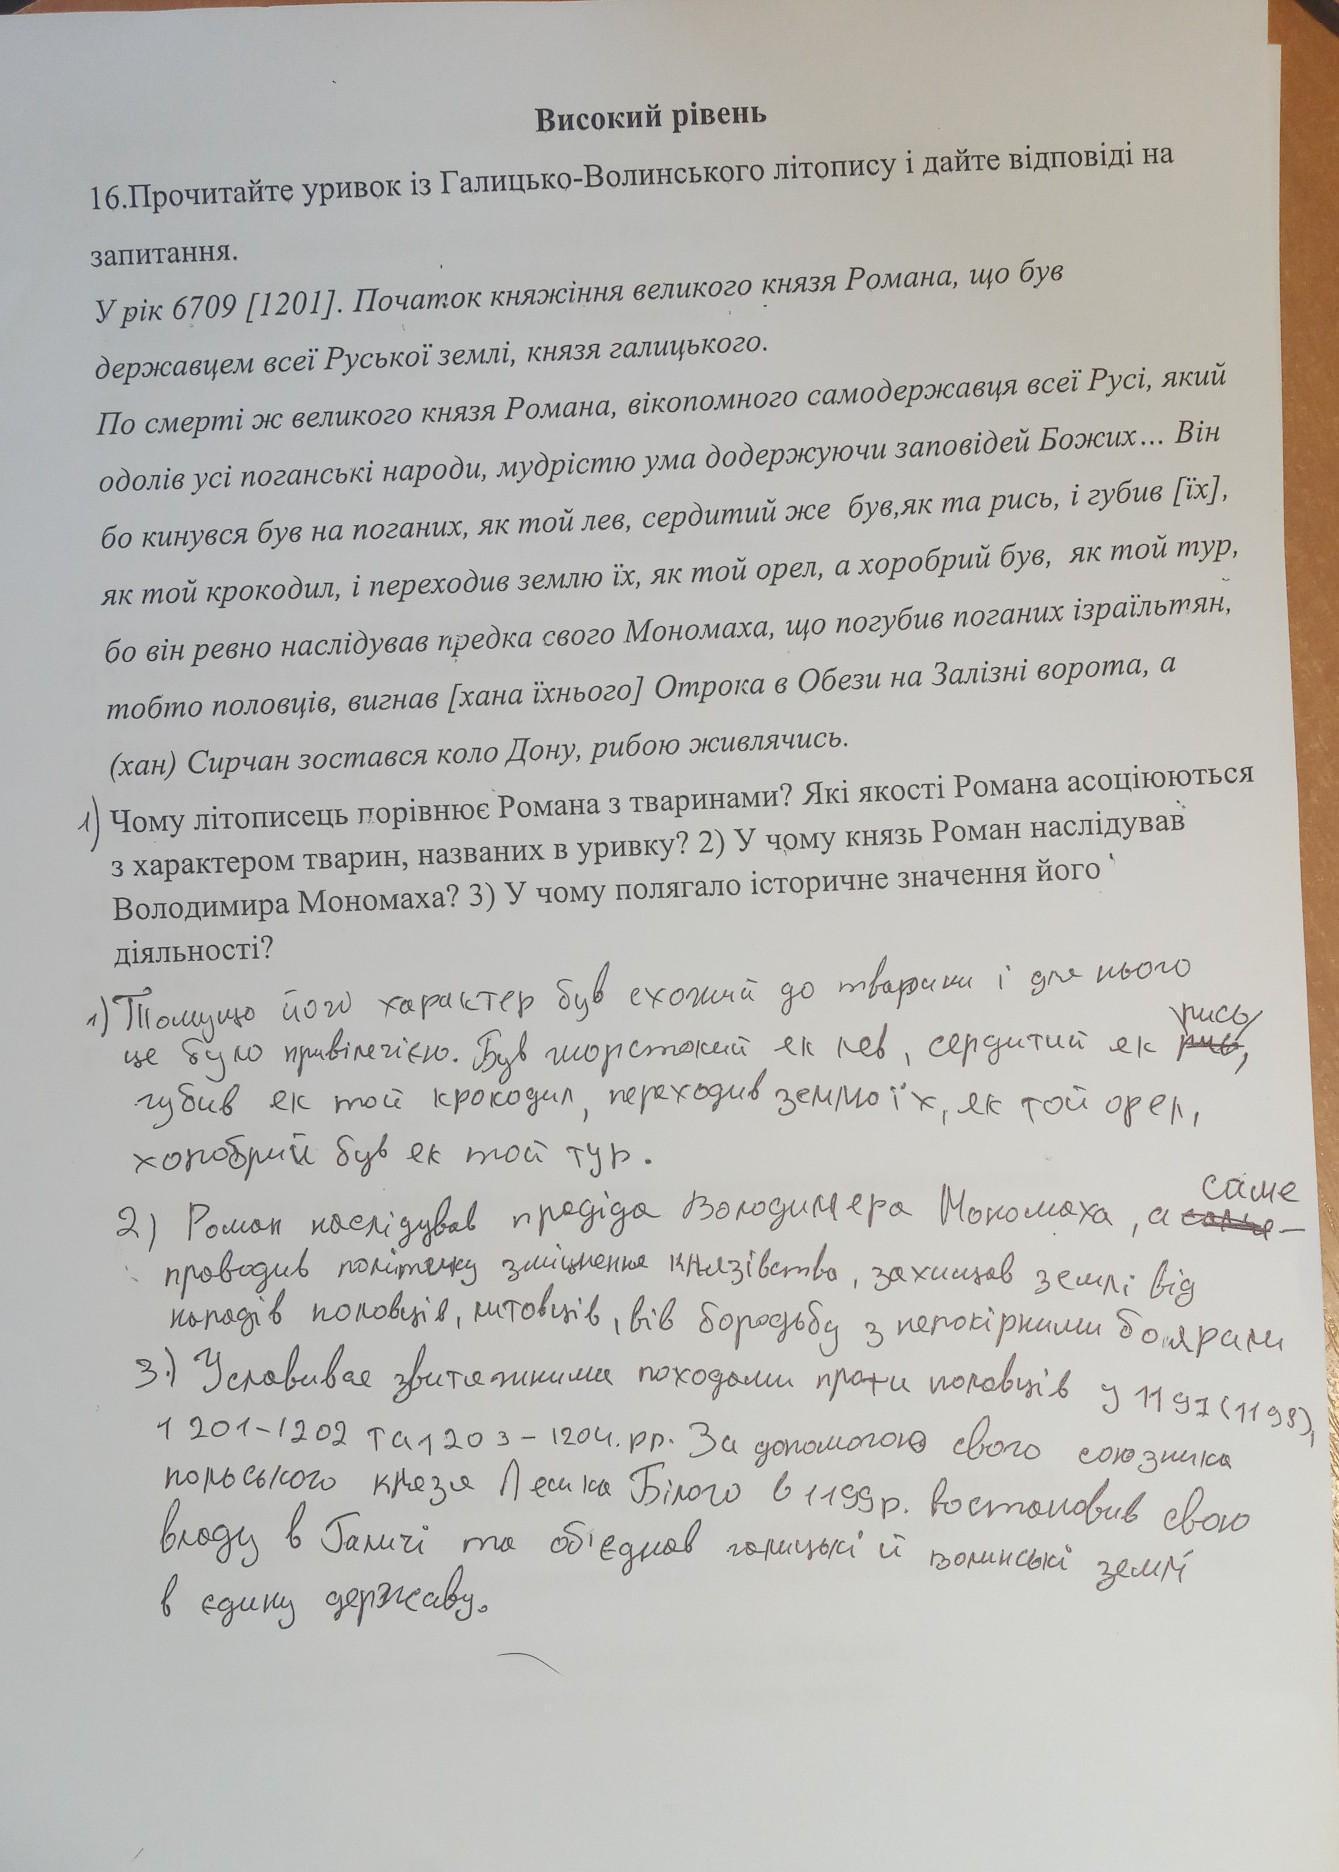 Високий рівень
16.Прочитайте уривок із Галицько-Волинського літопису і дайте відповіді на
запитання.
У рік 6709 [1201]. Початок княжіння великого князя Романа, що був
державцем всеї Руської землі, князя галицького.
По смерті ж великого князя Романа, вікопомного самодержавця всеї Русі, який
одолів усі поганські народи, мудрістю ума додержуючи заповідей Божих... Він
бо кинувся був на поганих, як той лев, сердитий же був,як та рись, і губив [їх],
як той крокодил, і переходив землю їх, як той орел, а хоробрий був, як той тур,
бо він ревно наслідував предка свого Мономаха, що погубив поганих ізраїльтян,
тобто половців, вигнав [хана їхнього] Отрока в Обези на Залізні ворота, а
(хан) Сирчан зостався коло Дону, рибою живлячись.
1) Чому літописець порівнює Романа з тваринами? Які якості Романа асоціюються
з характером тварин, названих в уривку? 2) У чому князь Роман наслідував
Володимира Мономаха? 3) У чому полягало історичне значення його
діяльності?
1) Томущо його характер був схожий до тварини і для нього
це було привілегією. Був жорстокий як лев, сердитий як рись,
губив як той крокодил, переходив землю їх, як той орел,
хоробрий був як той тур.
2) Роман наслідував прадіда Володимера Мономаха, а саме -
проводив політику зміцнення князівства, захищав землі від
нападів половців, литовців, вів бородьбу з непокірними боярами
3.) Уславився звитяжними походами проти половців у 1197(1198),
1201-1202 та 1203-1204.рр. За допомогою свого союзника
польського князя Лешка Білого в 1199р. востановив свою
владу в Галичі та об'єднав галицькі й волинські землі
в єдину державу.